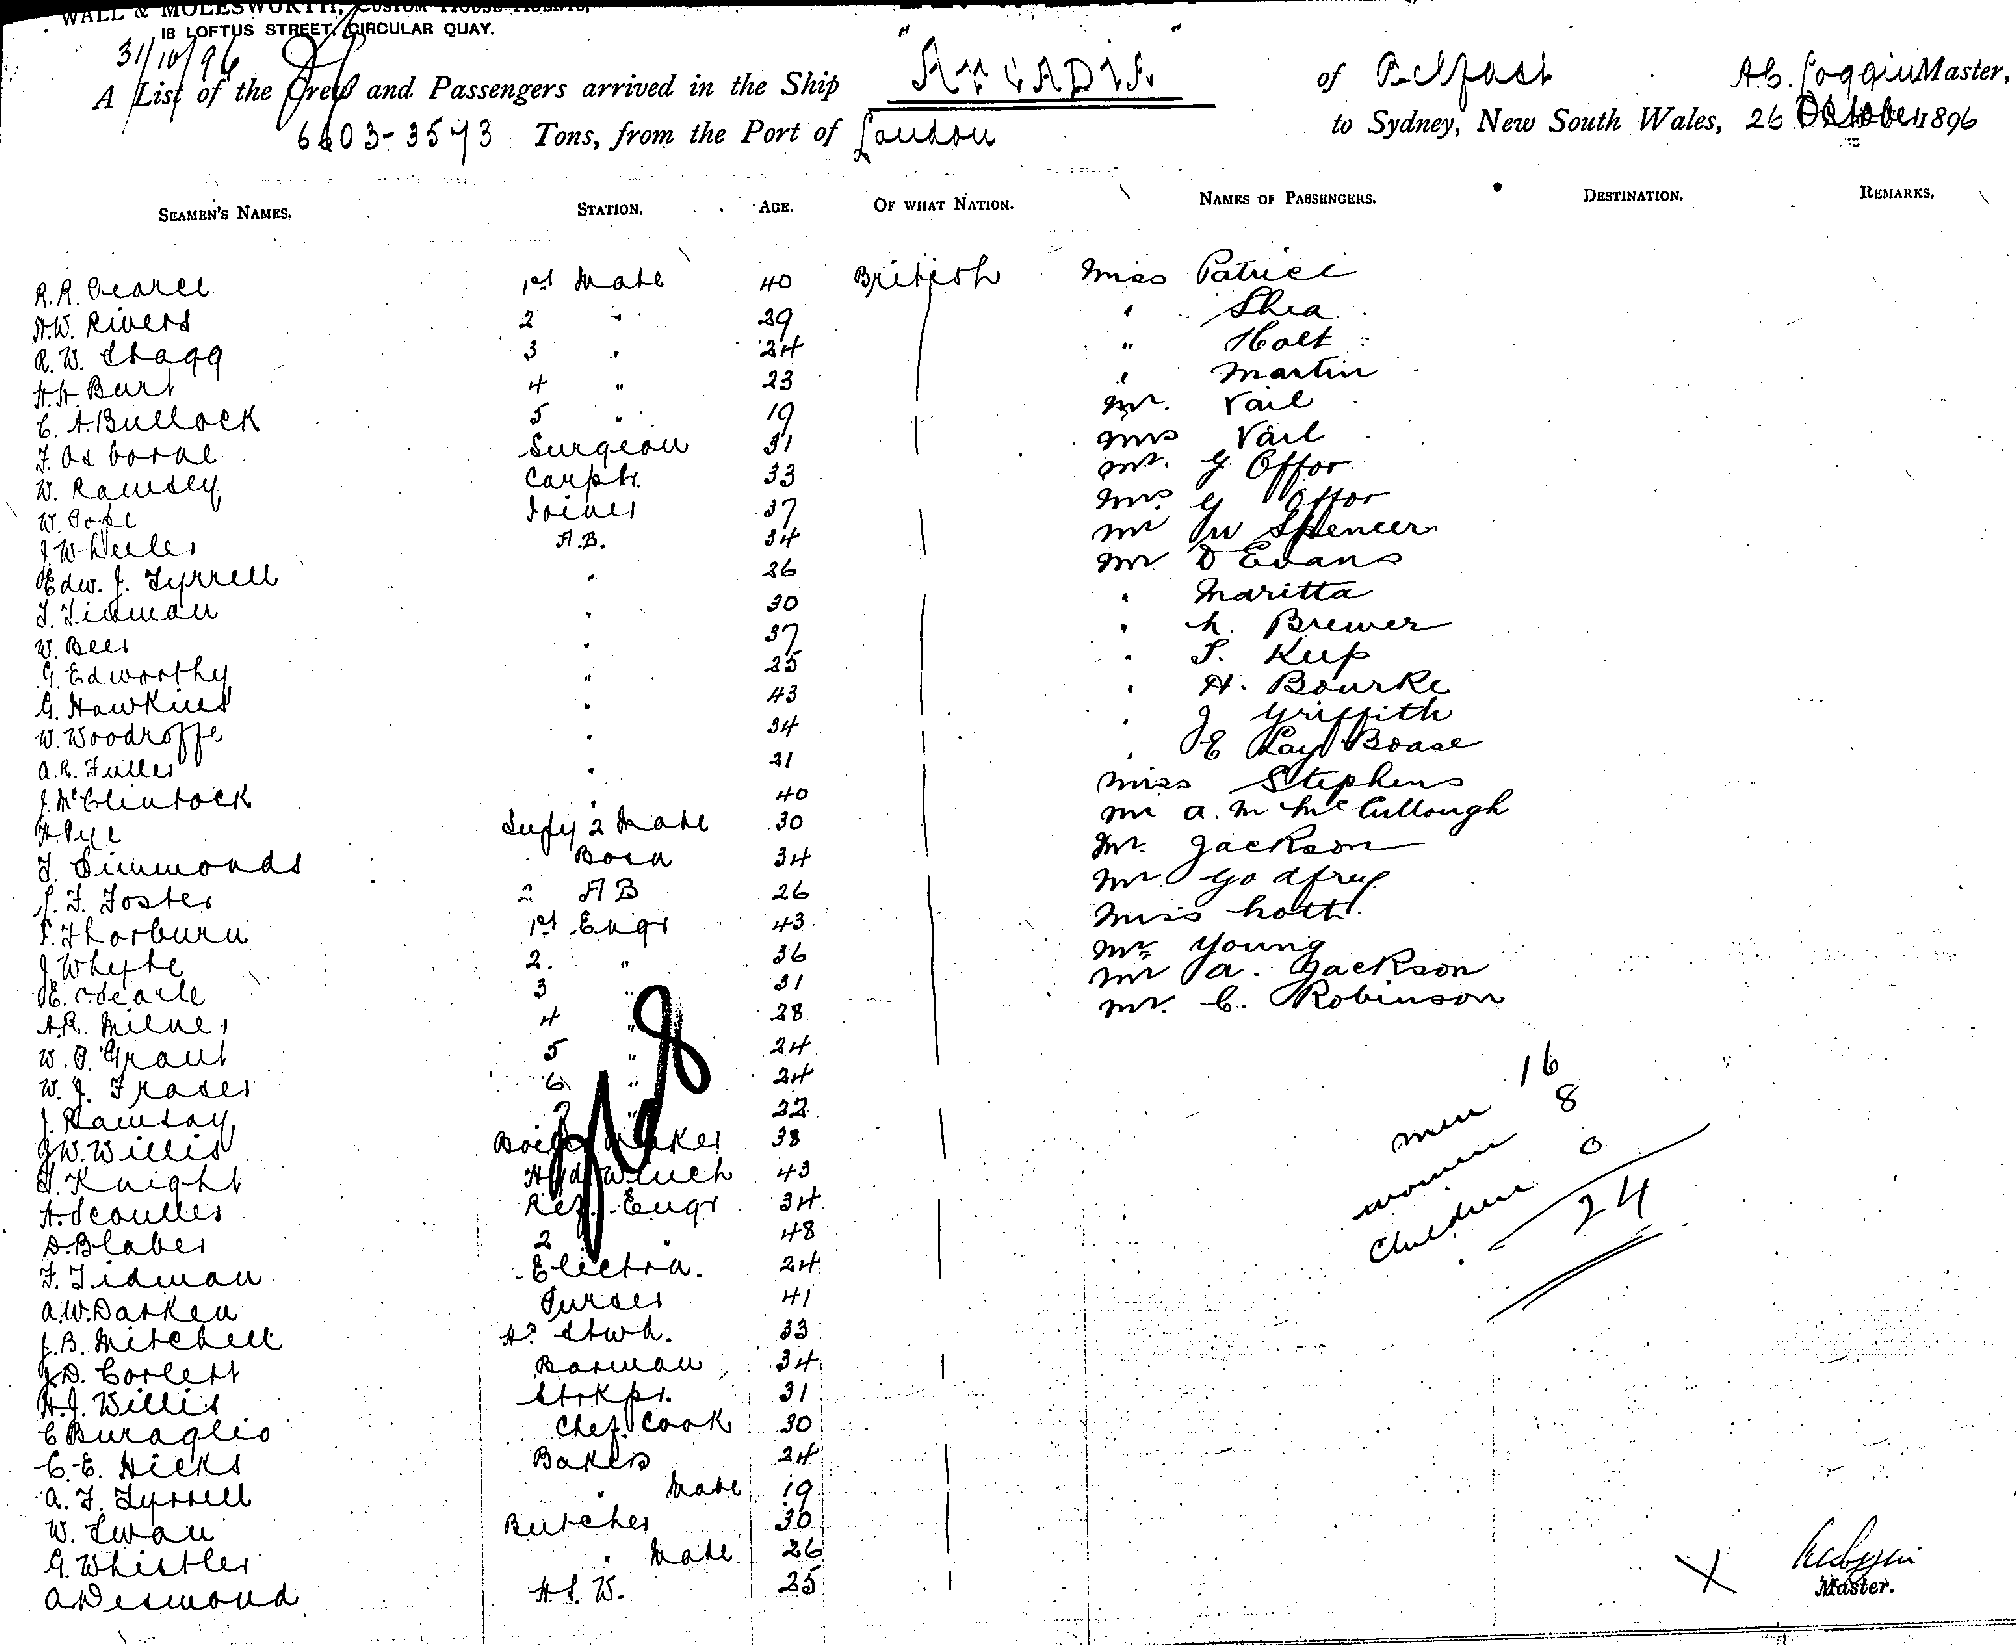 WALL & MOLESWORTH, CUSTOM HOUSE AGENTS,
18 LOFTUS STREET, CIRCULAR QUAY.
31/10/96
A List of the Crew and Passengers arrived in the Ship "ARCADIA" of Belfast A.C. Loggin Master,
6603-3573 Tons, from the Port of London to Sydney, New South Wales, 26 October 1896
SEAMEN'S NAMES. STATION. AGE. OF WHAT NATION. NAMES OF PASSENGERS. DESTINATION. REMARKS.
R.R. Pearce 1st Mate 40 British Miss Patrici
H.W. Rivers 2 " 29 " Shea
R.W. Stagg 3 " 24 " Holt
H.H. Burt 4 " 23 " Martin
C. A. Bullock 5 " 19 Mr. Vail
F. Osborne Surgeon 31 Mrs Vail
W. Ramsey Carptr. 33 Mr. G Offor
W. Pope Joiner 37 Mrs. G Offor
J Wheeler A.B. 34 Mr W Spencer
Edw. J. Tyrrell " 26 Mr D Evans
T. Tidman " 30 " Maritta
W. Beer " 37 " Brewer
G. Edworthy " 25 " Kup
G. Hawkins " 43 " H. Bourke
W. Woodroffe " 34 " J Griffith
A.E. Fuller " 21 " E Lay Boase
J. McClintock " 40 Miss Stephens
H Pye Supy 2 Mate 30 Mr A. M McCullough
T. Simmonds Bosn 34 Mr. Jackson
F. Foster 2 AB 26 Mr Godfrey
Thorburn 1st Engr 43 Miss Nott
J Whyte 2. " 36 Mr Young
E. Searle 3 " 31 Mr A. Jackson
A.R. Milner 4 " 28 Mr. C. Robinson
W. P. Grant 5 " 24
W. J. Fraser 6 " 24
J. Ramsay 7 " 22
J.W. Willis Boilermaker 38
T. Knight Hyd Winch 43
A. Scouller Ref. Engr 34
D. Blaber 2 " 48
F. Tidman Electrn. 24
A.W. Darken Purser 41
J.B. Mitchell Hd Stwd. 33
J.D. Corlett Barman 34
H.J. Willis Strkpr. 31
C Buraglio Chef Cook 30
C. E. Hicks Baker 24
A. F. Tyrrell " Mate 19
W. Swan Butcher 30
G. Whistler " Mate 26
A Desmond 25
Men 16
Women 8
Children 0
24
Master.